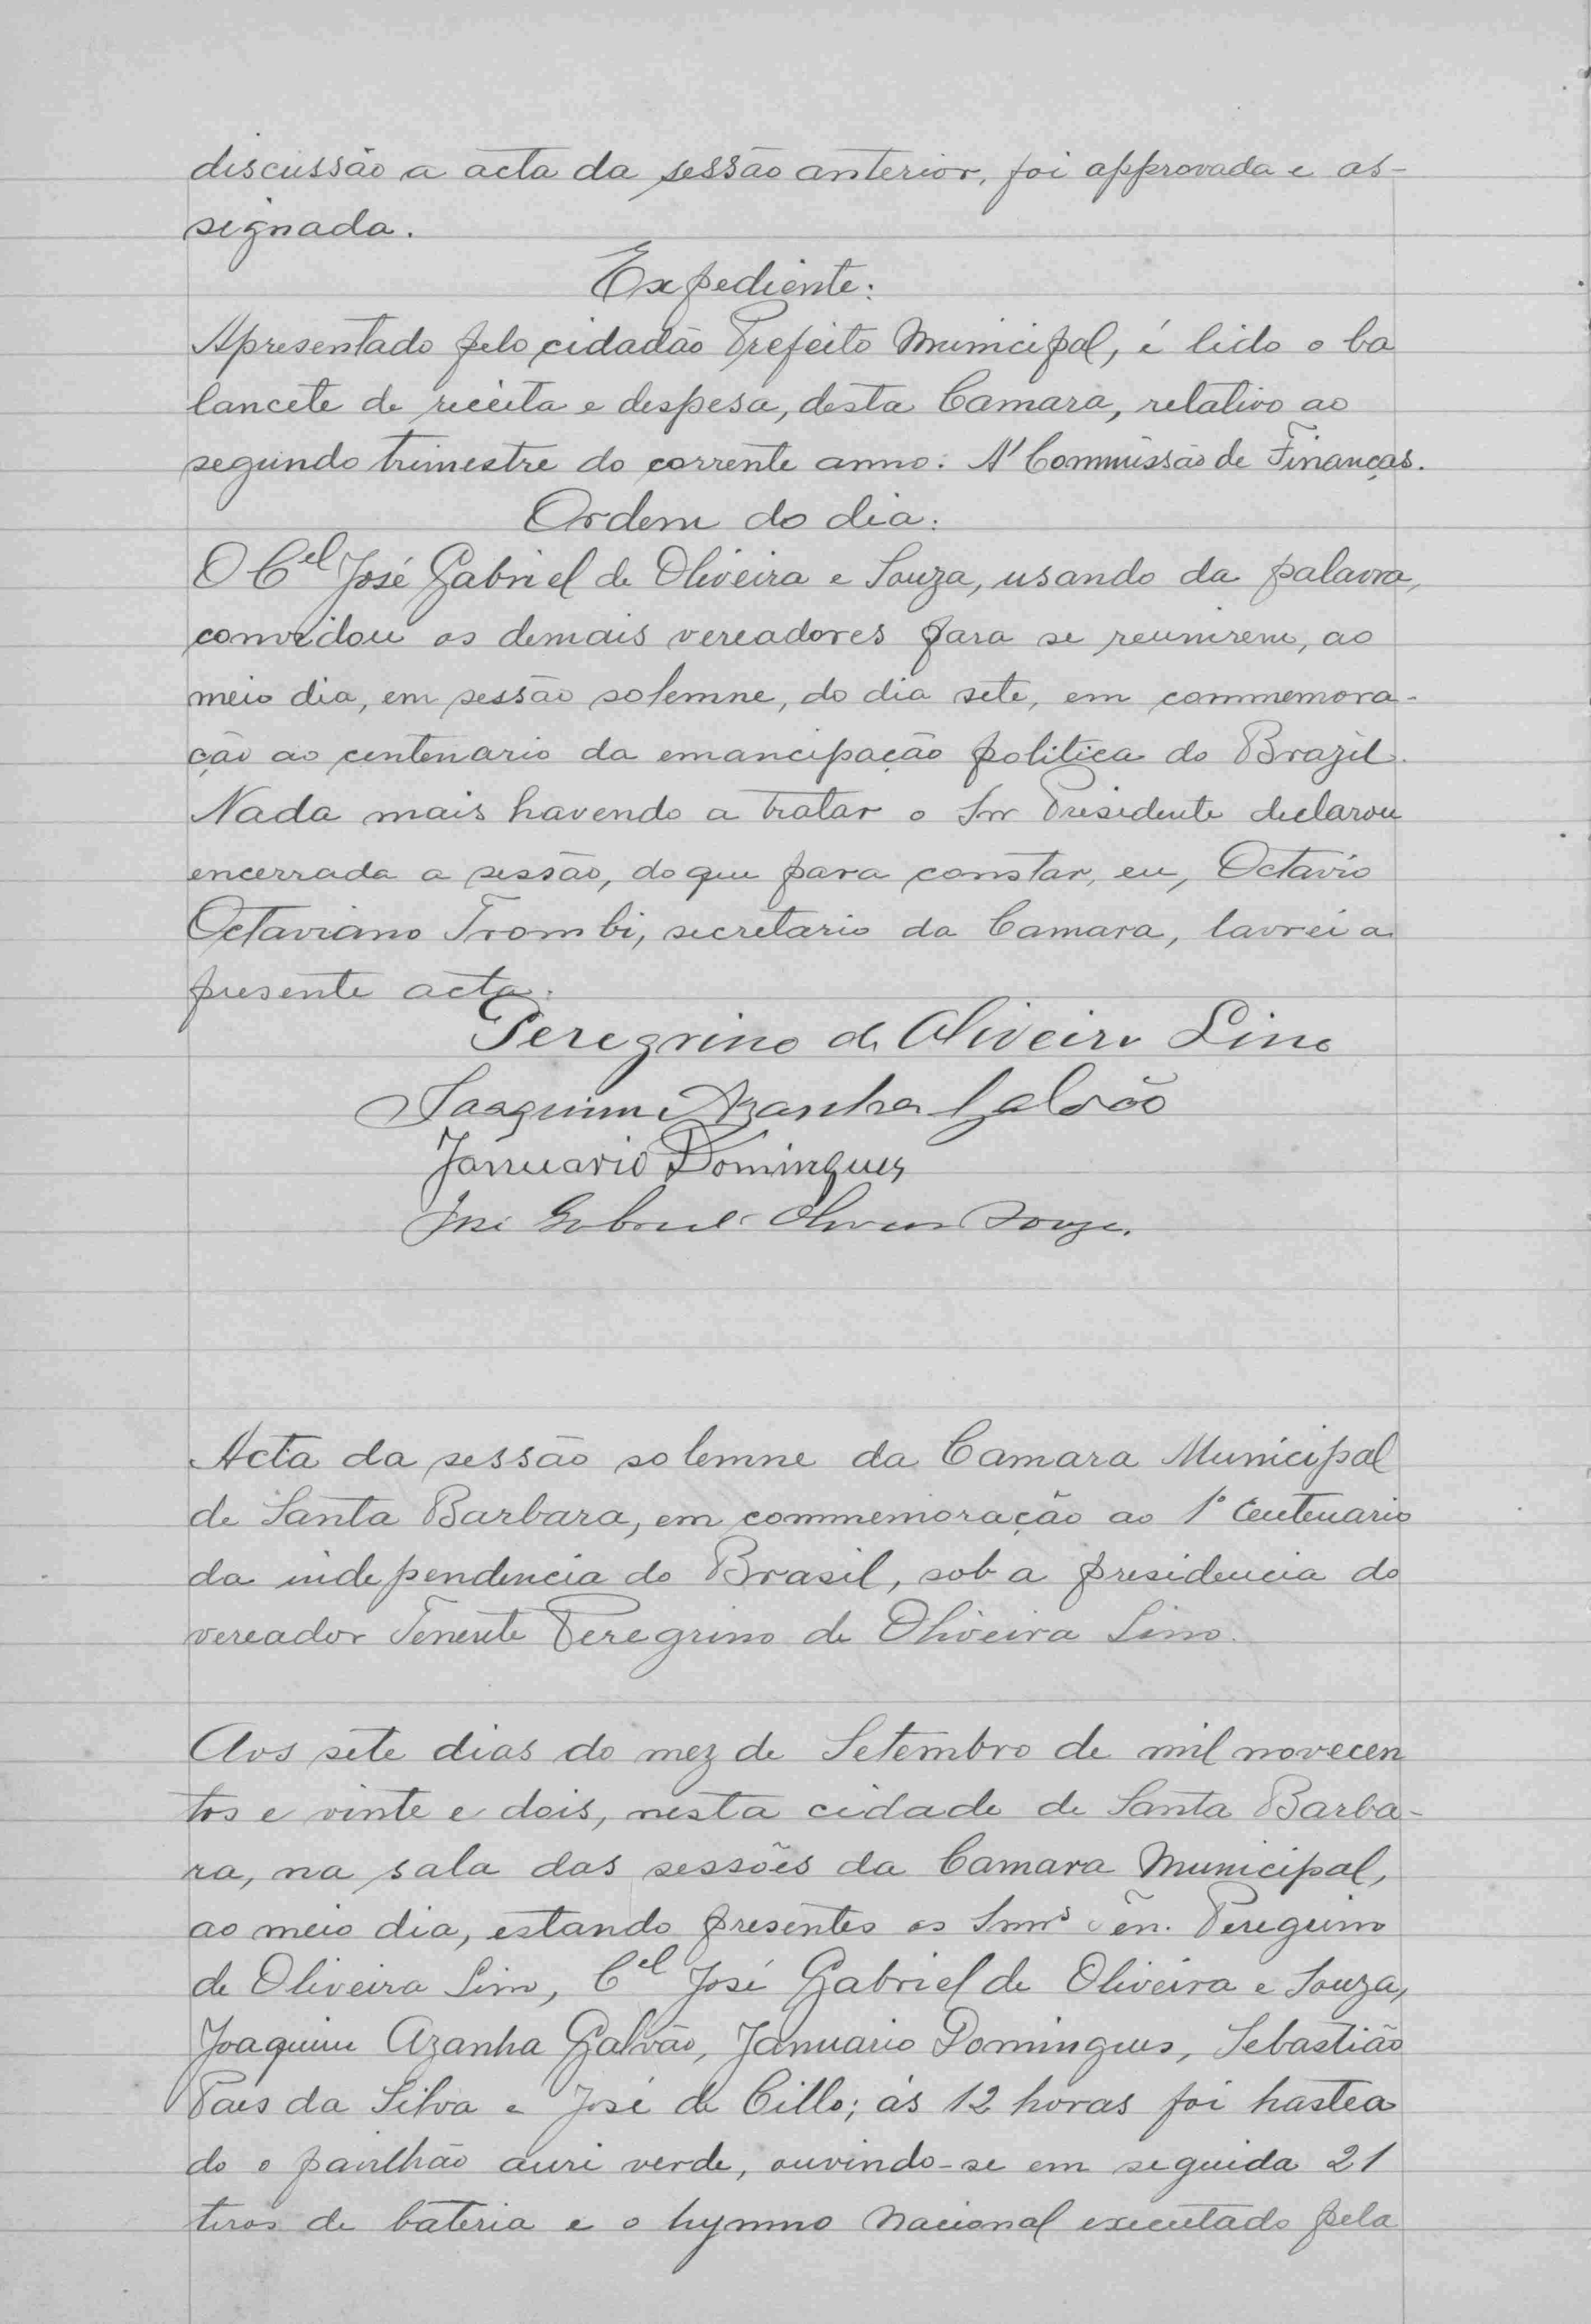 discussão a acta da sessão anterior, foi approvada e as-
signada.
Expediente:
Apresentado pelo cidadão Prefeito Municipal, é lido o ba
lancete de receita e despesa, desta Camara, relativo ao
segundo trimestre do corrente anno. A' Commissão de Finanças.
Ordem do dia:
O Cel José Gabriel de Oliveira e Souza, usando da palavra,
convidou os demais vereadores para se reunirem, ao
meio dia, em sessão solemne, do dia sete, em commemora-
ção ao centenario da emancipação politica do Brazil.
Nada mais havendo a tratar o Snr Presidente declarou
encerrada a sessão, do que para constar, eu, Octavio
Octaviano Trombi, secretario da Camara, lavrei a
presente acta.
Peregrino de Oliveira Lino
Joaquim Azanha Galvão
Januario Domingues
José Gabriel Oliveira Souza.
Acta da sessão solemne da Camara Municipal
de Santa Barbara, em commemoração ao 1º Centenario
da independencia do Brasil, sob a presidencia do
vereador Tenente Peregrino de Oliveira Lino.
Aos sete dias do mez de Setembro de mil novecen
tos e vinte e dois, nesta cidade de Santa Barba-
ra, na sala das sessões da Camara Municipal,
ao meio dia, estando presentes os Snrs Ten. Peregrino
de Oliveira Lino, Cel José Gabriel de Oliveira e Souza,
Joaquim Azanha Galvão, Januario Domingues, Sebastião
Paes da Silva e José de Cillo; ás 12 horas foi hastea
do o pavilhão auri verde, ouvindo-se em seguida 21
tiros de bateria e o hymno Nacional executado pela